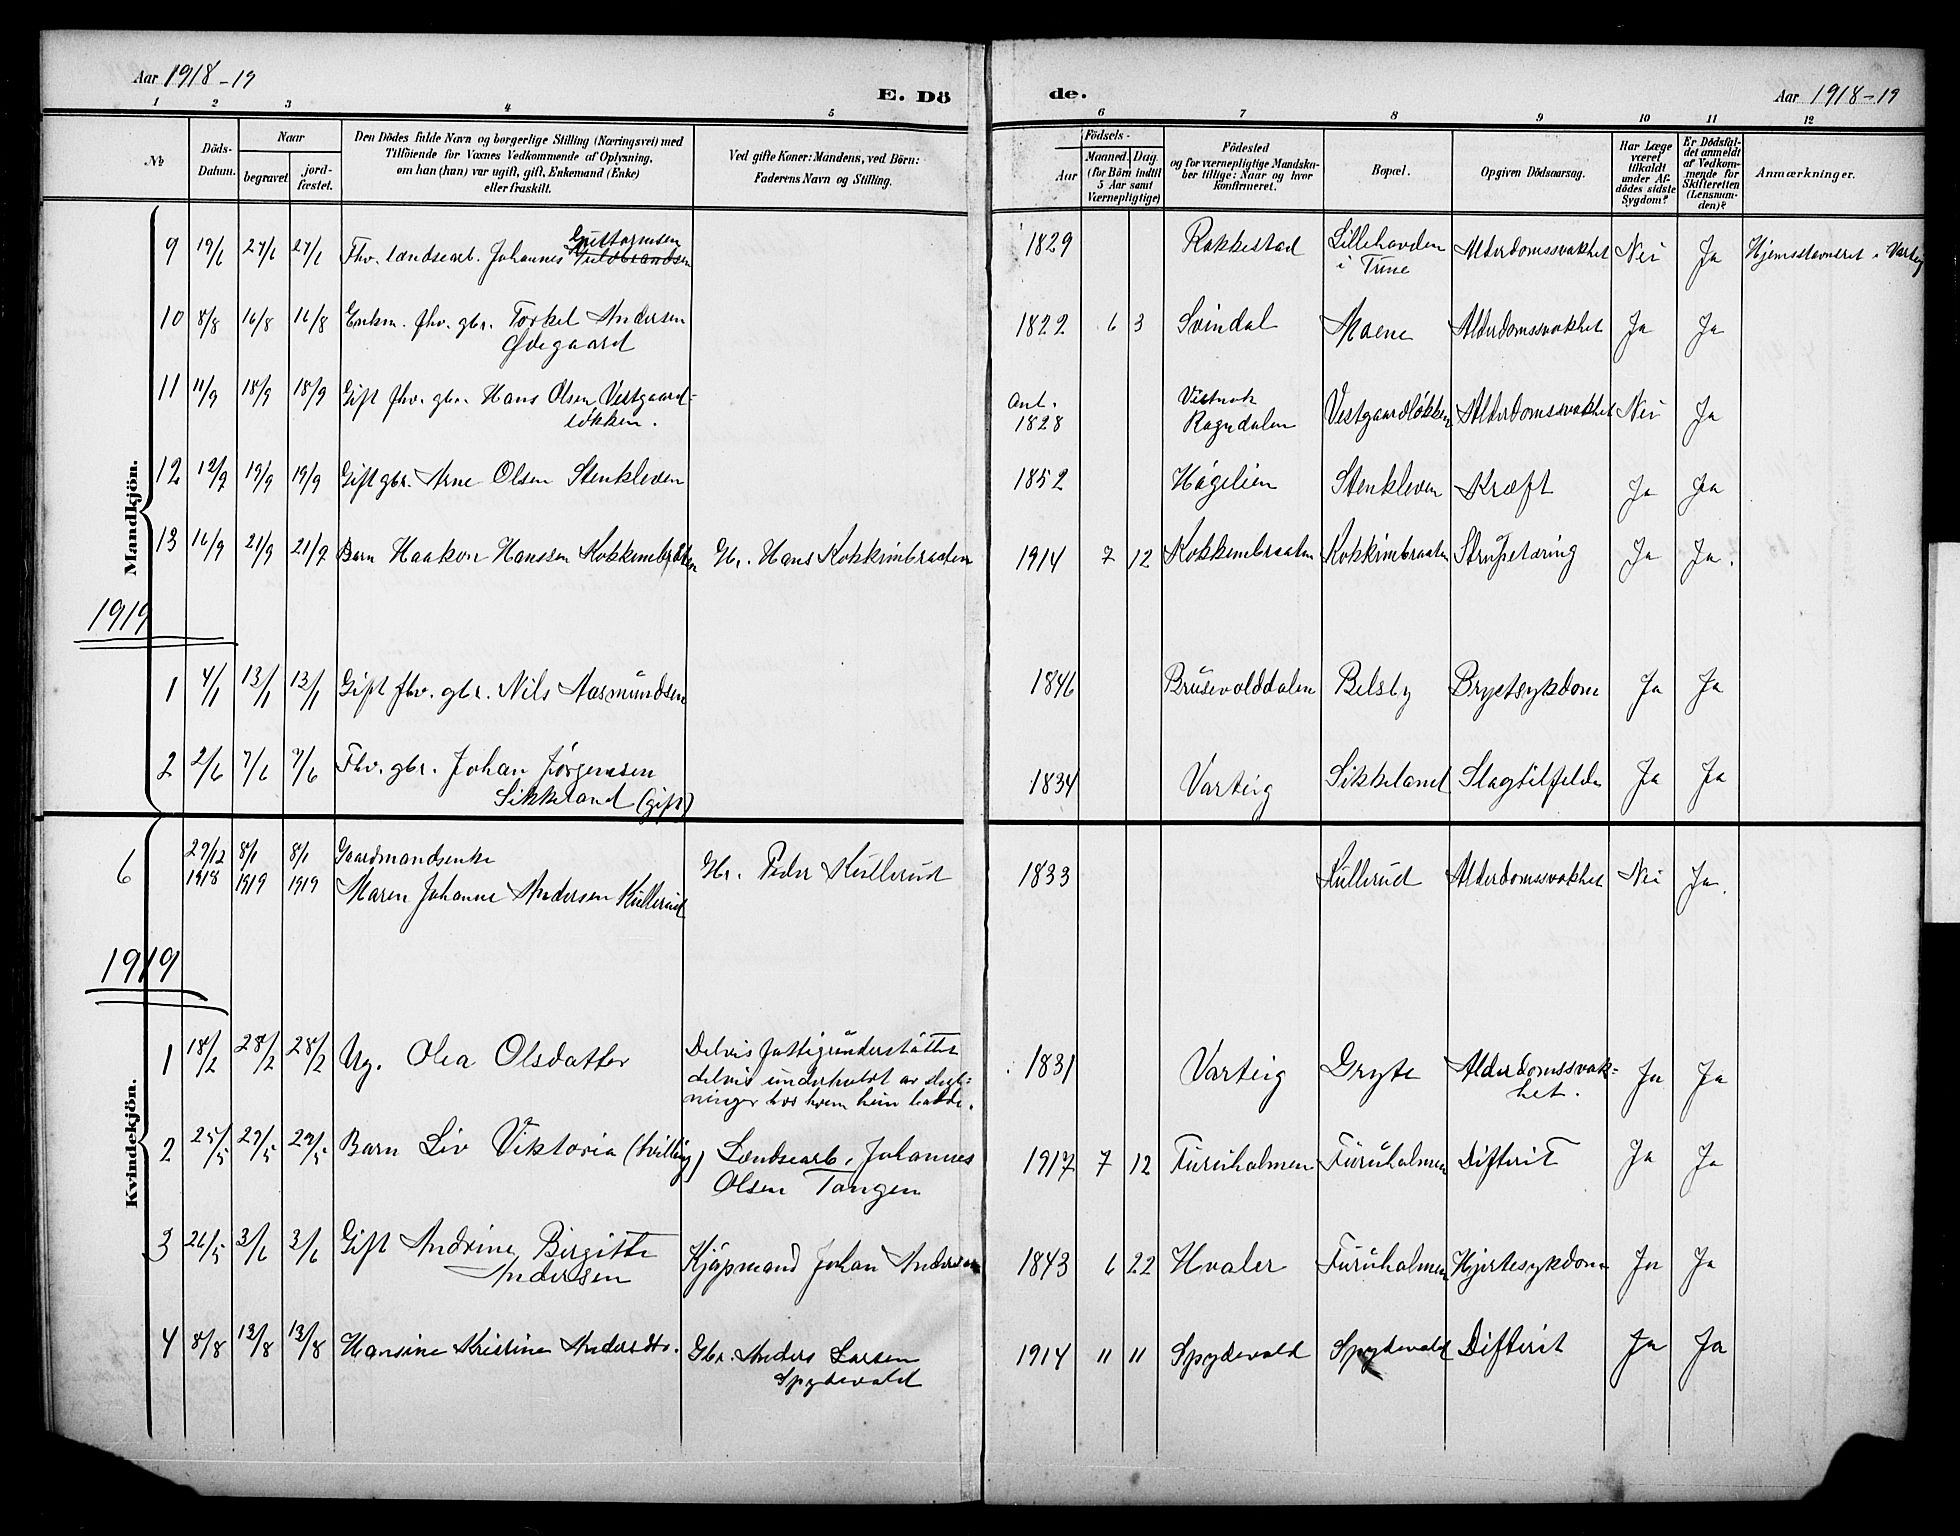 Aar 1918-19
E. Dö
de.
Aar 1918-19
1 2 3 4 5
6 7 8 9 10 11 12
No
Döds-Datum.
Naar
begravet
jord-fæstet.
Den Dödes fulde Navn og borgerlige Stilling (Næringsvei) med
Tilföiende for Voxnes Vedkommende af Oplysning,
om han (hun) var ugift, gift, Enkemand (Enke)
eller fraskilt.
Ved gifte Koner: Mandens, ved Börn:
Faderens Navn og Stilling.
Födsels-
Aar
Maaned. Dag.
(for Börn indtil
5 Aar samt
Værnepligtige)
Födested
og for værnepligtige Mandska-
ber tillige: Naar og hvor
konfirmeret.
Bopæl.
Opgiven Dödsaarsag.
Har Læge
været
tilkaldt
under Af-
dödes sidste
Sygdom?
Er Dödsfal-
det anmeldt
af Vedkom-
mende for
Skifteretten
(Lensman-
den)?
Anmærkninger.
Mandkjön.
Guttormsen
9 19/6 27/6 27/6 Fhv. landsearb. Johannes 1829 Rakkestad Lillehavden Alderdomssvakhet Nei Ja Hjemstavnsret i Varteig
i Tune
10 8/8 16/8 16/8 Enkm. fhv. gbr. Torkel Andersen 1822 6 3 Svindal Moene Alderdomssvakhet Ja Ja
Ødegaard
11 11/9 18/9 18/9 Gift fhv. gbr. Hans Olsen Vestgaard- Ant. Vistnok Vestgaardløkken Alderdomssvakhet Nei Ja
løkken. 1828 Ragndalen
12 12/9 19/9 19/9 Gift gbr. Arne Olsen Stenkleven 1852 Høgelien Stenkleven Kræft Ja Ja
13 16/9 21/9 21/9 Barn Haakon Hanssen Kokkimbraaten Gbr. Hans Kokkimbraaten 1914 7 12 Kokkimbraaten Kokkimbraaten Strupetæring Ja Ja.
1919
1 4/1 13/1 13/1 Gift fhv. gbr. Nils Aasmundsen 1846 Brusevolddalen Belsby Brystsykdom Ja Ja
2 2/6 7/6 7/6 Fhv. gbr. Johan Jørgensen 1834 Varteig Sikkeland Slagtilfelde Ja Ja
Sikkeland (gift)
6 27/12 8/1 8/1 Gaardmandsenke Gbr. Peder Kullerud 1833 Kullerud Alderdomssvakhet Nei Ja.
1918 1919 1919 Maren Johanne Andersen Kullerud
1919
Kvindekjön.
1 18/2 28/2 28/2 Ug. Olea Olsdatter Delvis fattigunderstøttet 1831 Varteig Gryte Alderdomssvak- Ja Ja
delvis underholdt av slegt- het.
ninger hos hvem hun bodde.
2 25/5 29/5 29/5 Barn Liv Viktoria (tvilling) Landsearb. Johannes 1917 7 12 Furuholmen Furuholmen Difterit Ja Ja
Olsen Tangen
3 26/5 3/6 3/6 Gift Andrine Birgitte Kjøpmand Johan Andersen 1843 6 22 Hvaler Furuholmen Hjertesykdom Ja Ja
Andersen
4 8/8 13/8 13/8 Hansine Kristine Andersdtr. Gbr. Anders Larsen 1914 11 11 Spydevold Spydevold Difterit Ja Ja
Spydevold